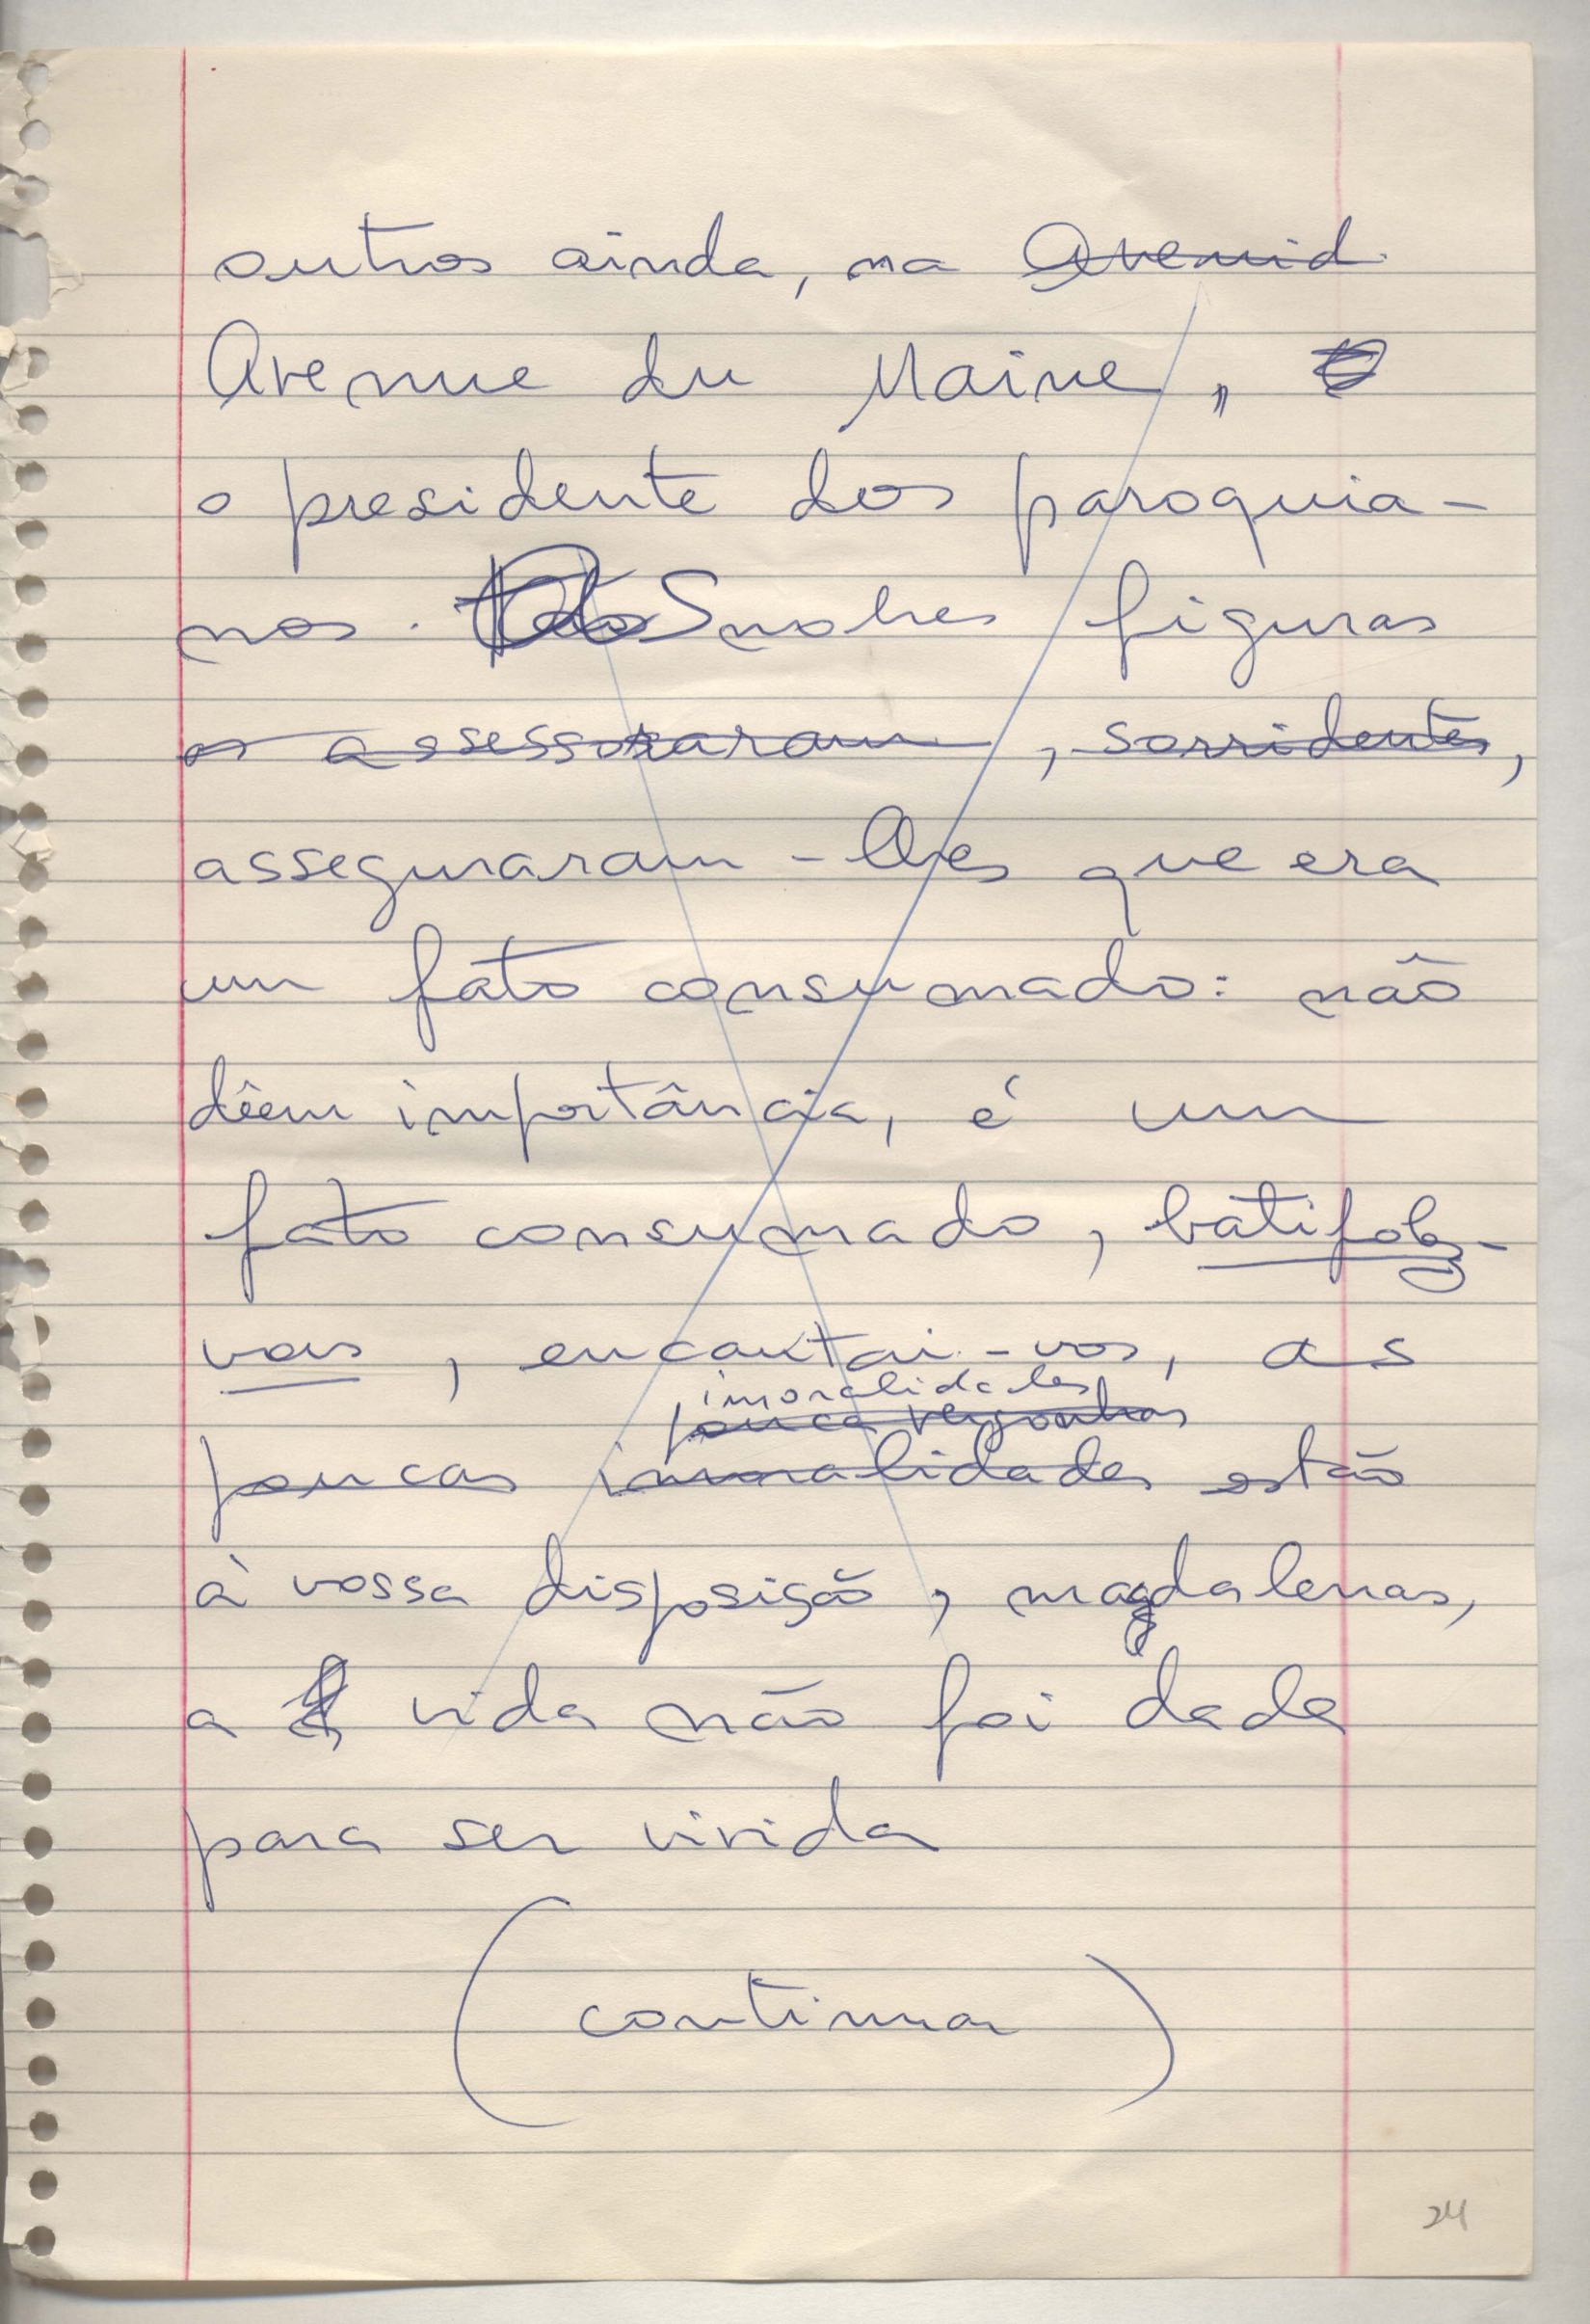 outros ainda, na Avenid
Avenue du Maine,
o presidente dos paroquia-
nos. Snobes figuras
os assessoraram, sorridentes,
asseguraram-lhes que era
um fato consumado: não
dêem importância, é um
fato consumado, batifolez-
vous, encantai-vos, as
imoralidades
pouca vergonhas
poucas imoralidades estão
à vossa disposição, magdalenas,
a vida não foi dada
para ser vivida
(continua)
24